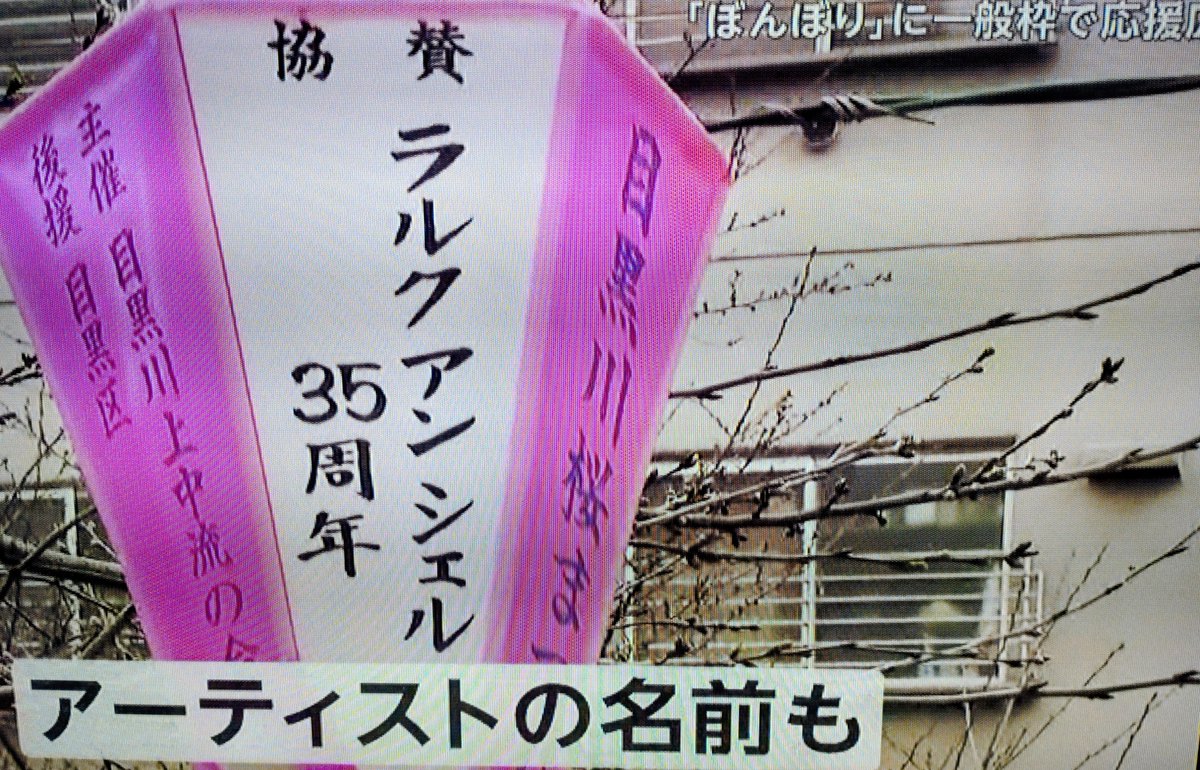 「ぼんぼり」に一般枠で応援
目黒川桜ま
協賛
ラルク アン シェル
35周年
主催 目黒川上中流の
後援 目黒区
アーティストの名前も